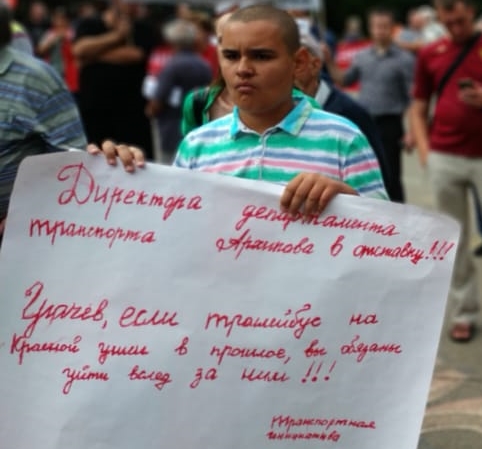 Директора департамента
транспорта Архипова в отставку!!!
Грачёв, если тролейбус на
Красной ушёл в прошлое, вы обязаны
уйти вслед за ним!!!
Транспортная
инициатива